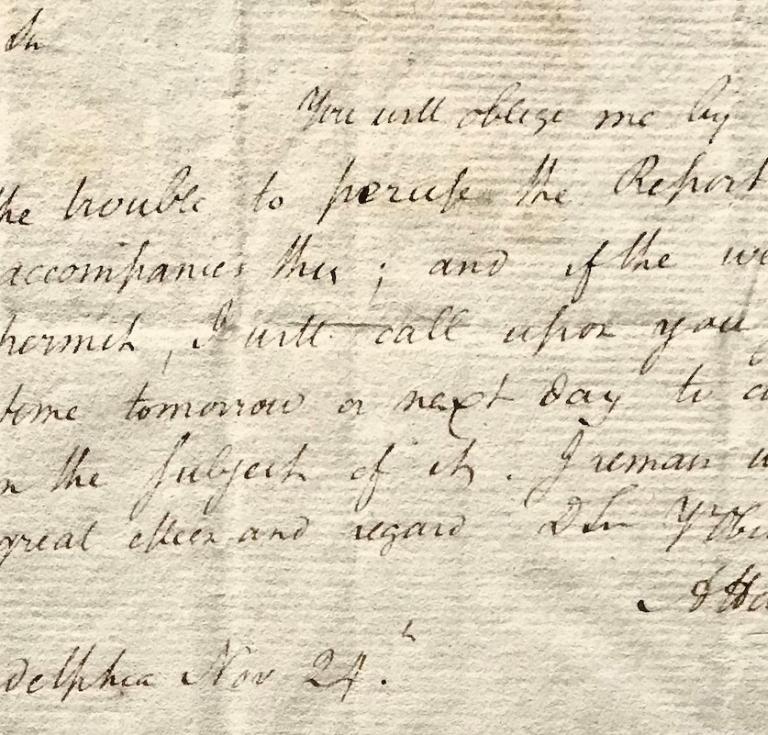 Sir
You will oblige me by
the trouble to peruse the Report
accompanies this; and if the we
permit, I will call upon you
time tomorrow or next day to
n the subject of it. I remain w
great esteem and regard D Sir Yr Obe
A Ha
delphia Nov 24.h